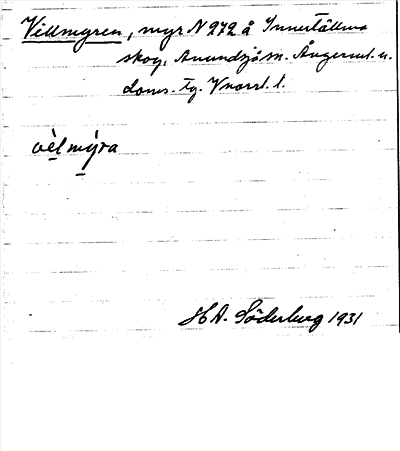 Villmyren, myr N 272 å Innertällmo
skog, Anundsjö sn. Ångerml. n.
doms. tg. Vnorrl. l.
vèlmýra
H A. Söderberg 1931